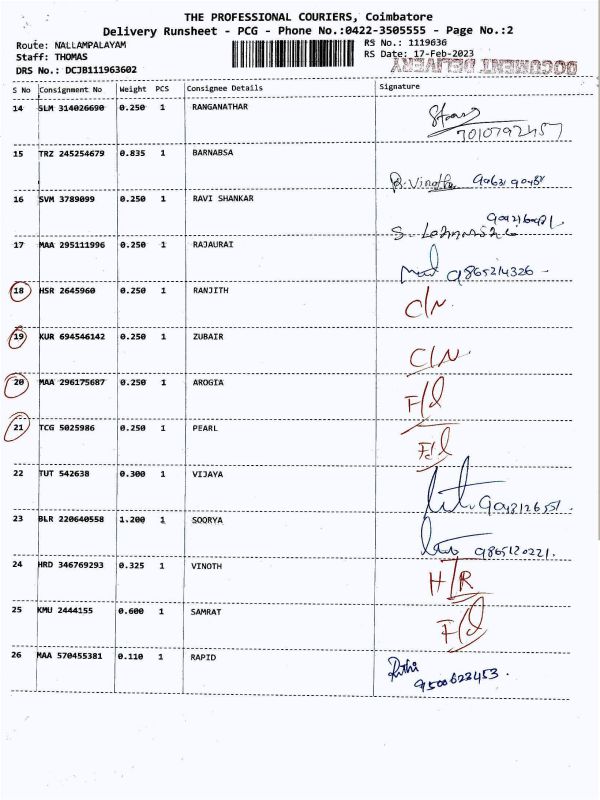 THE PROFESSIONAL COURIERS, Coimbatore
Delivery Runsheet - PCG - Phone No.:0422-3505555 - Page No.:2
Route: NALLAMPALAYAM
RS No.: 1119636
Staff: THOMAS
RS Date: 17-Feb-2023
DRS No.: DCJB111963602
DOCUMENT DELIVERY
S No Consignment No Weight PCS Consignee Details Signature
14 SLM 314026690 0.250 1 RANGANATHAR
7010792457
15 TRZ 245254679 0.835 1 BARNABSA
16 SVM 3789099 0.250 1 RAVI SHANKAR
17 MAA 295111996 0.250 1 RAJAURAI
9865214326
18 HSR 2645960 0.250 1 RANJITH
C/N.
19 KUR 694546142 0.250 1 ZUBAIR
C/N.
20 MAA 296175687 0.250 1 AROGIA
F/d
21 TCG 5025986 0.250 1 PEARL
F/d
22 TUT 542638 0.300 1 VIJAYA
23 BLR 220640558 1.200 1 SOORYA
9865120221.
24 HRD 346769293 0.325 1 VINOTH
H/R
25 KMU 2444155 0.600 1 SAMRAT
F/d
26 MAA 570455381 0.110 1 RAPID
9500623453.